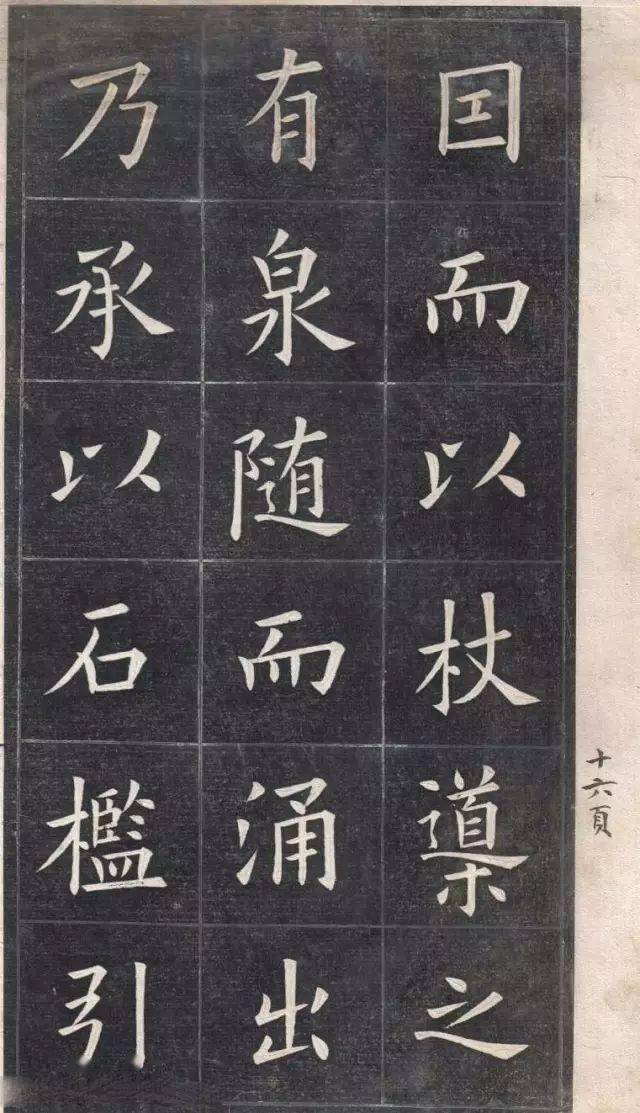 十六頁
囙而以杖導之
有泉随而涌出
乃承以石檻引